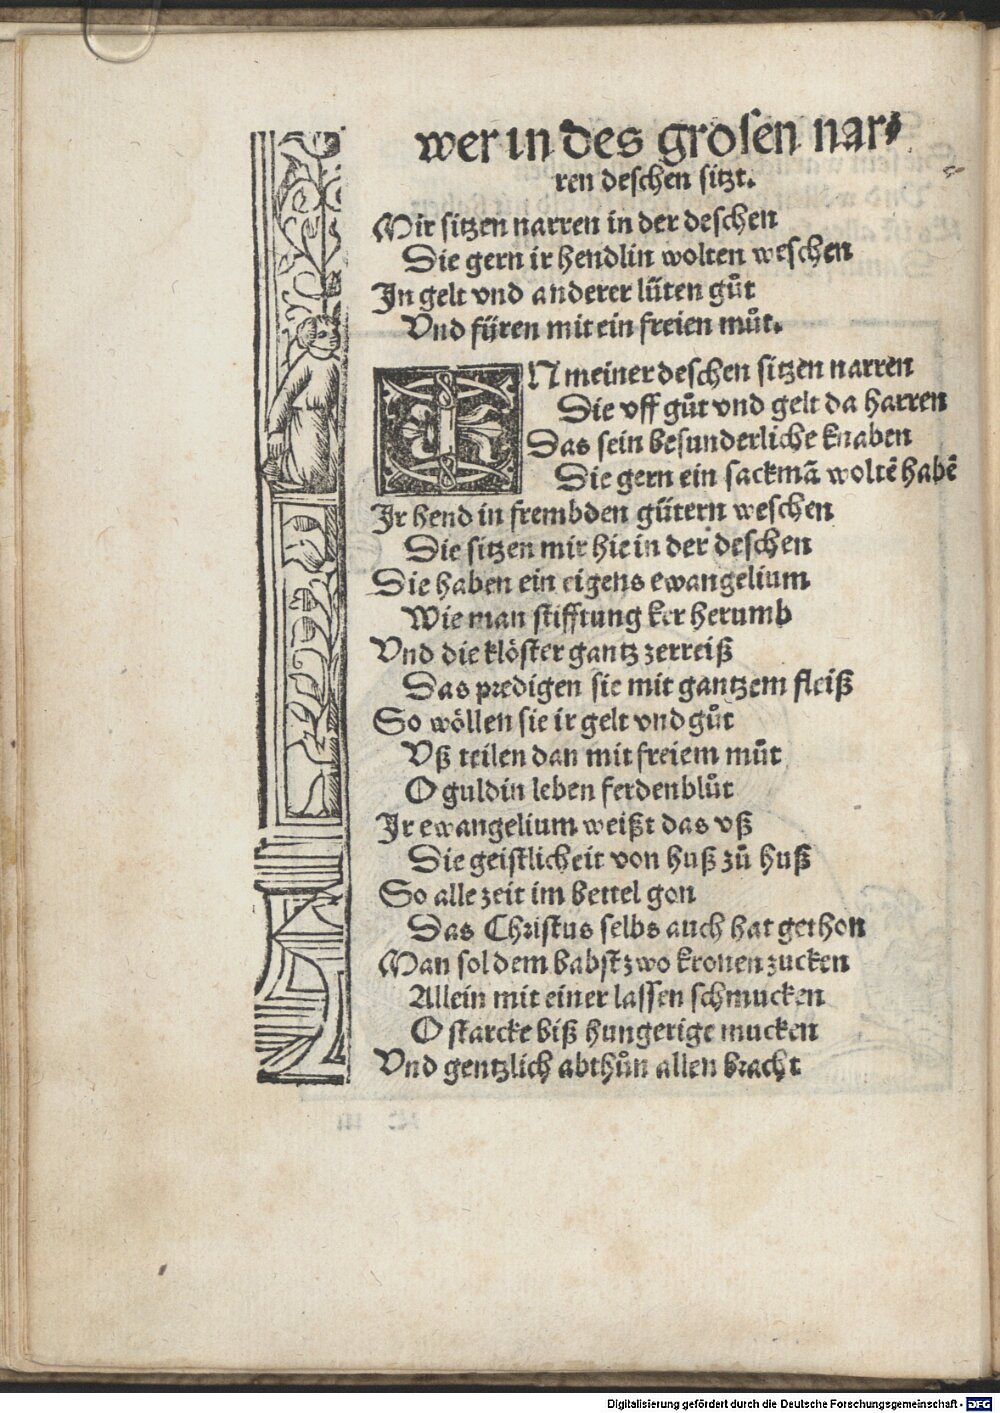 wer in des grosen nar⸗
ren deschen sitzt.
Mir sitzen narren in der deschen
Die gern ir hendlin wolten weschen
In gelt vnd anderer lüten gůt
Vnd füren mit ein freien můt.
IN meiner deschen sitzen narren
Die vff gůt vnd gelt da harren
Das sein besunderliche knaben
Die gern ein sackmã woltẽ habẽ
Ir hend in frembden gütern weschen
Die sitzen mir hie in der deschen
Die haben ein eigens ewangelium
Wie man stifftung ker herumb
Vnd die klöster gantz zerreiß
Das predigen sie mit gantzem fleiß
So wöllen sie ir gelt vnd gůt
Vß teilen dan mit freiem můt
O guldin leben ferdenblůt
Ir ewangelium weißt das vß
Die geistlicheit von huß zů huß
So alle zeit im bettel gon
Das Christus selbs auch hat gethon
Man sol dem babst zwo kronen zucken
Allein mit einer lassen schmucken
O starcke biß hungerige mucken
Vnd gentzlich abthůn allen bracht
Digitalisierung gefördert durch die Deutsche Forschungsgemeinschaft - DFG